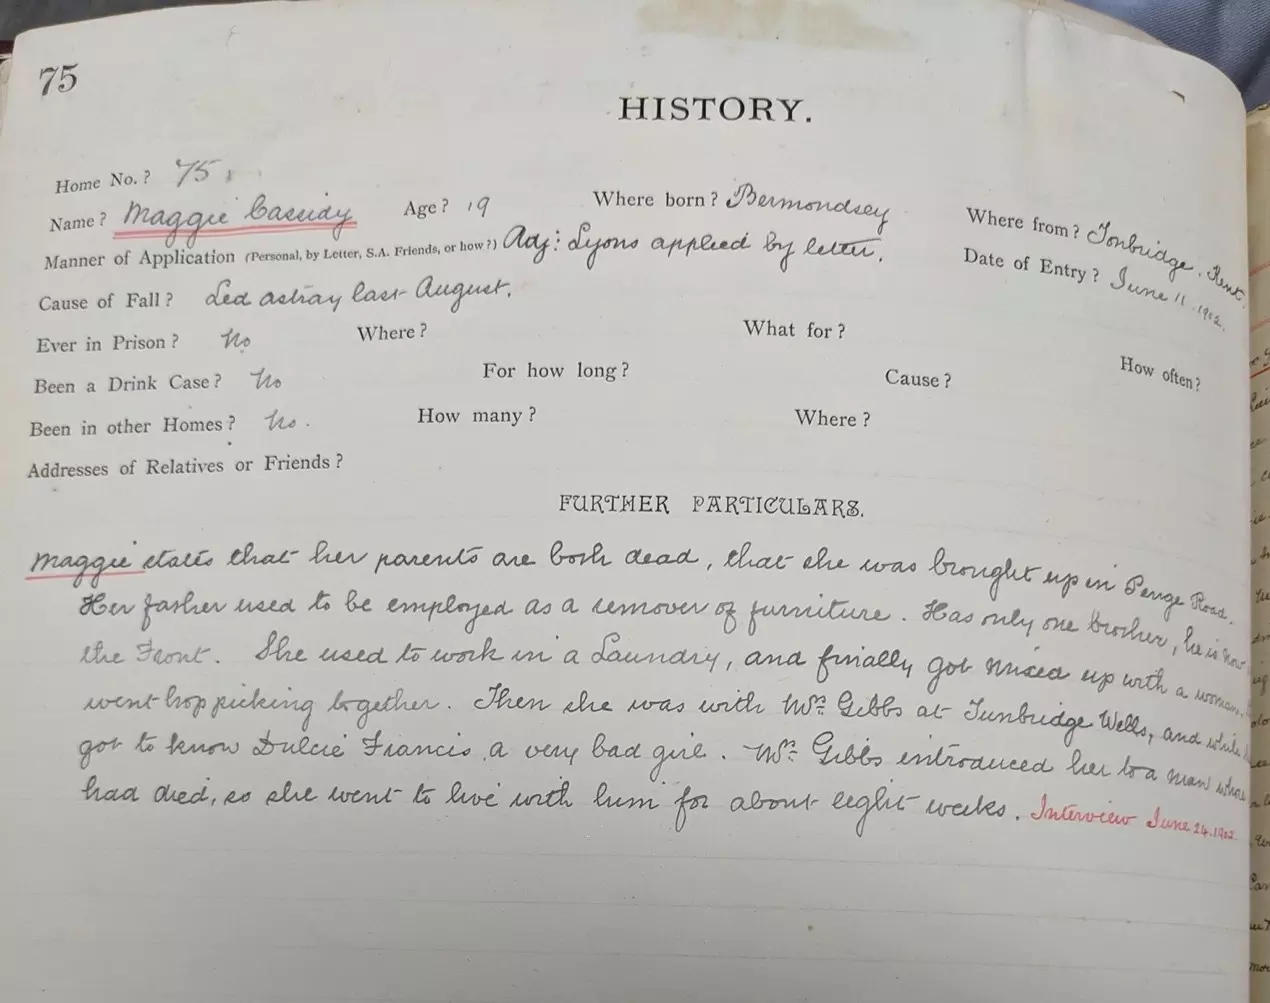 75
HISTORY.
Home No.? 75.
Name? Maggie Cassidy Age? 19 Where born? Bermondsey Where from? Tonbridge. Kent.
Manner of Application (Personal, by Letter, S.A. Friends, or how?) Adj: Lyons applied by letter. Date of Entry? June 11. 1902.
Cause of Fall? Led astray last August.
Ever in Prison? No Where? What for? How often?
Been a Drink Case? No For how long? Cause?
Been in other Homes? No. How many? Where?
Addresses of Relatives or Friends?
FURTHER PARTICULARS.
Maggie states that her parents are both dead, that she was brought up in Penge Road.
Her father used to be employed as a remover of furniture. Has only one brother, he is now
the Front. She used to work in a Laundry, and finally got mixed up with a woman,
went hop picking together. Then she was with Mrs. Gibbs at Tunbridge Wells, and while
got to know Dulcie Francis, a very bad girl. Mrs. Gibbs introduced her to a man whose
had died, so she went to live with him for about eight weeks. Interview June 24. 1902